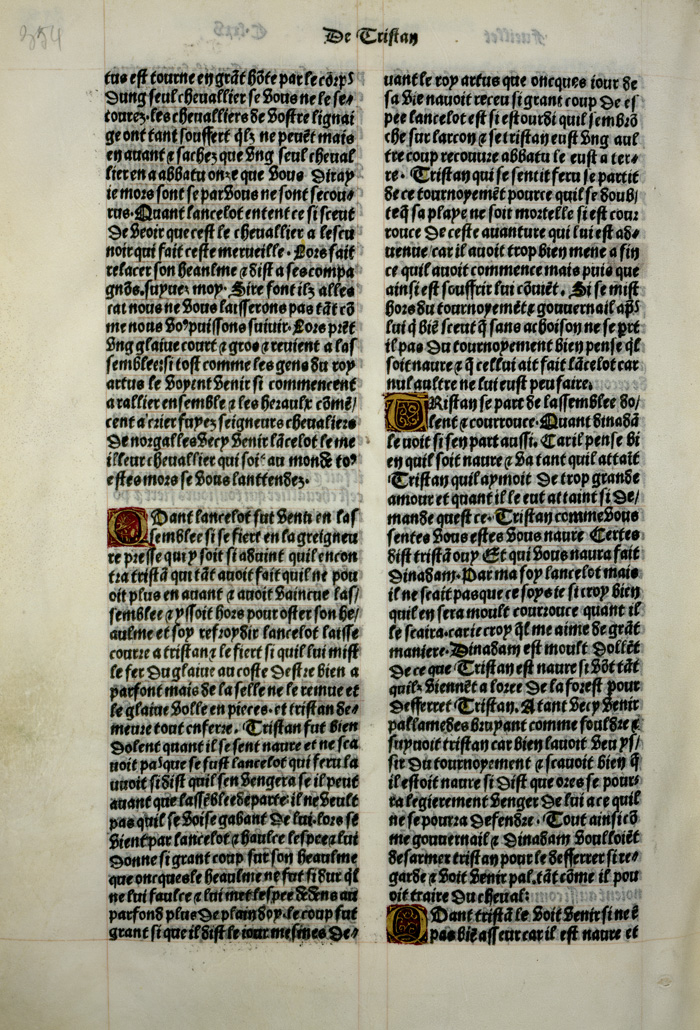 354
De Tristan
tus est tourne en grāt hōte par le corps
Dung seul cheuallier se vous ne le se⸗
tourez. les cheualliers de vostre lignai
ge ont tant souffert qlz ne peuēt mais
en auant ⁊ sachez que vng seul cheual
lier en a abbatu onze que vous diray
ie mors sont se par vous ne sont secou⸗
rus. Quant lancelot entent ce si sceut
De veoir que cest le cheuallier a lescu
noir qui fait ceste merueille. Lors fait
relacer son heaulme ⁊ dist a ses compa
gnōs. suyuez moy. Sire font ilz alles
cat nous ne vous laisserons pas tāt cō
me nous vo⁹ puissons suiuir. Lors prēt
vng glaiue court ⁊ gros ⁊ reuient a las
semblee: si tost comme les gens du roy
artus le voyent venir si commencent
a rallier ensemble ⁊ les heraulx cōmē/
cent a crier fuyez seigneurs cheualiers
De norgalles vecy venir lācelot le me
illeur cheuallier qui soit au monde to⁹
estes mors se vous lanttendez.
QVant lancelot fut venu en las
semblee si se fiert en la greigneu
re presse qui y soit si aduint quil encon
tra tristā qui tāt auoit fait quil ne pou
oit plus en auant ⁊ auoit vaincue las/
semblee ⁊ yssoit hors pour oster son he/
aulme et soy refroydir lancelot laisse
courre a tristan ⁊ le fiert si quil lui mist
le fer du glaiue au coste destre bien a
parfont mais de la selle ne le remue et
le glaiue volle en pieces. et tristan de⸗
meure tout enferre. Tristan fut bien
dolent quant il se sent naure et ne sca
uoit pas que se fust lancelot qui feru la
uoit si dist quil sen vengera se il peut
auant que lassēblee departe. il ne veult
pas quil se voise gabant de lui. lors se
vient par lancelot ⁊ haulce lespee ⁊ lui
donne si grant coup sur son heaulme
que oncques le heaulme ne fut si dur ql
ne lui faulce ⁊ lui met lespee dedens au
parfond plus de plain doy. le coup fut
grant si que il dist le iour mesmes de⸗
uant le roy artus que oncques iour de
sa vie nauoit receu si grant coup de es
pee lancelot est si estourdi quil sembrō
che sur larcon ⁊ se tristan eust vng aul
tre coup recouure abbatu le eust a ter⸗
re. Tristan qui se sentit feru se partit
de ce tournoyemēt pource quil se doub/
te q̄ sa playe ne soit mortelle si est cour
rouce de ceste auanture qui lui est ad⸗
uenue car il auoit trop bien mene a fin
ce quil auoit commence mais puis que
ainsi est souffrir lui cōuiēt. Si se mist
hors du tournoyemēt ⁊ gouuernail aps
lui q̄ biē sceut q̄ sans achoison ne se prt
il pas du tournoyement bien pense ql
soit naure ⁊ q̄ cellui ait fait lācelot car
nul aultre ne lui eust peu faire.
TRistan se part de lassemblee do/
lent ⁊ courrouce. Quant dinadā
le uoit si sen part aussi. Car il pense bi
en quil soit naure ⁊ va tant quil attaīt
Tristan quil aymoit de trop grande
amour et quant il le eut attaint si de/
mande quest ce. Tristan comme vous
sentes vous estes vous naure Certes
dist tristā ouy Et qui vous naura fait
dinadam. Par ma foy lancelot mais
il ne scait pas que ce soye ie si croy bien
quil en sera moult courrouce quant il
le scaira. car ie croy ql me aime de grāt
maniere. Dinadam est moult dollēt
de ce que Tristan est naure si vōt tāt
quilz viennēt a loree de la forest pour
defferret Tristan. Atant vecy venir
pallamedes bruyant comme fouldre ⁊
suyuoit tristan car bien lauoit veu ys/
sir du tournoyement ⁊ scauoit bien q̄
il estoit naure si dist que ores se pour⸗
ra legierement venger de lui a ce quil
ne se pourra defendre. Tout ainsi cō
me gouuernail ⁊ dinadam voulloiēt
desarmer tristan pour le defferrer si re⸗
garde ⁊ voit venir pal. tāt cōme il pou
oit traire du cheual:
QVant tristā le voit venir si ne ē
pas biē asseur car il est naure et